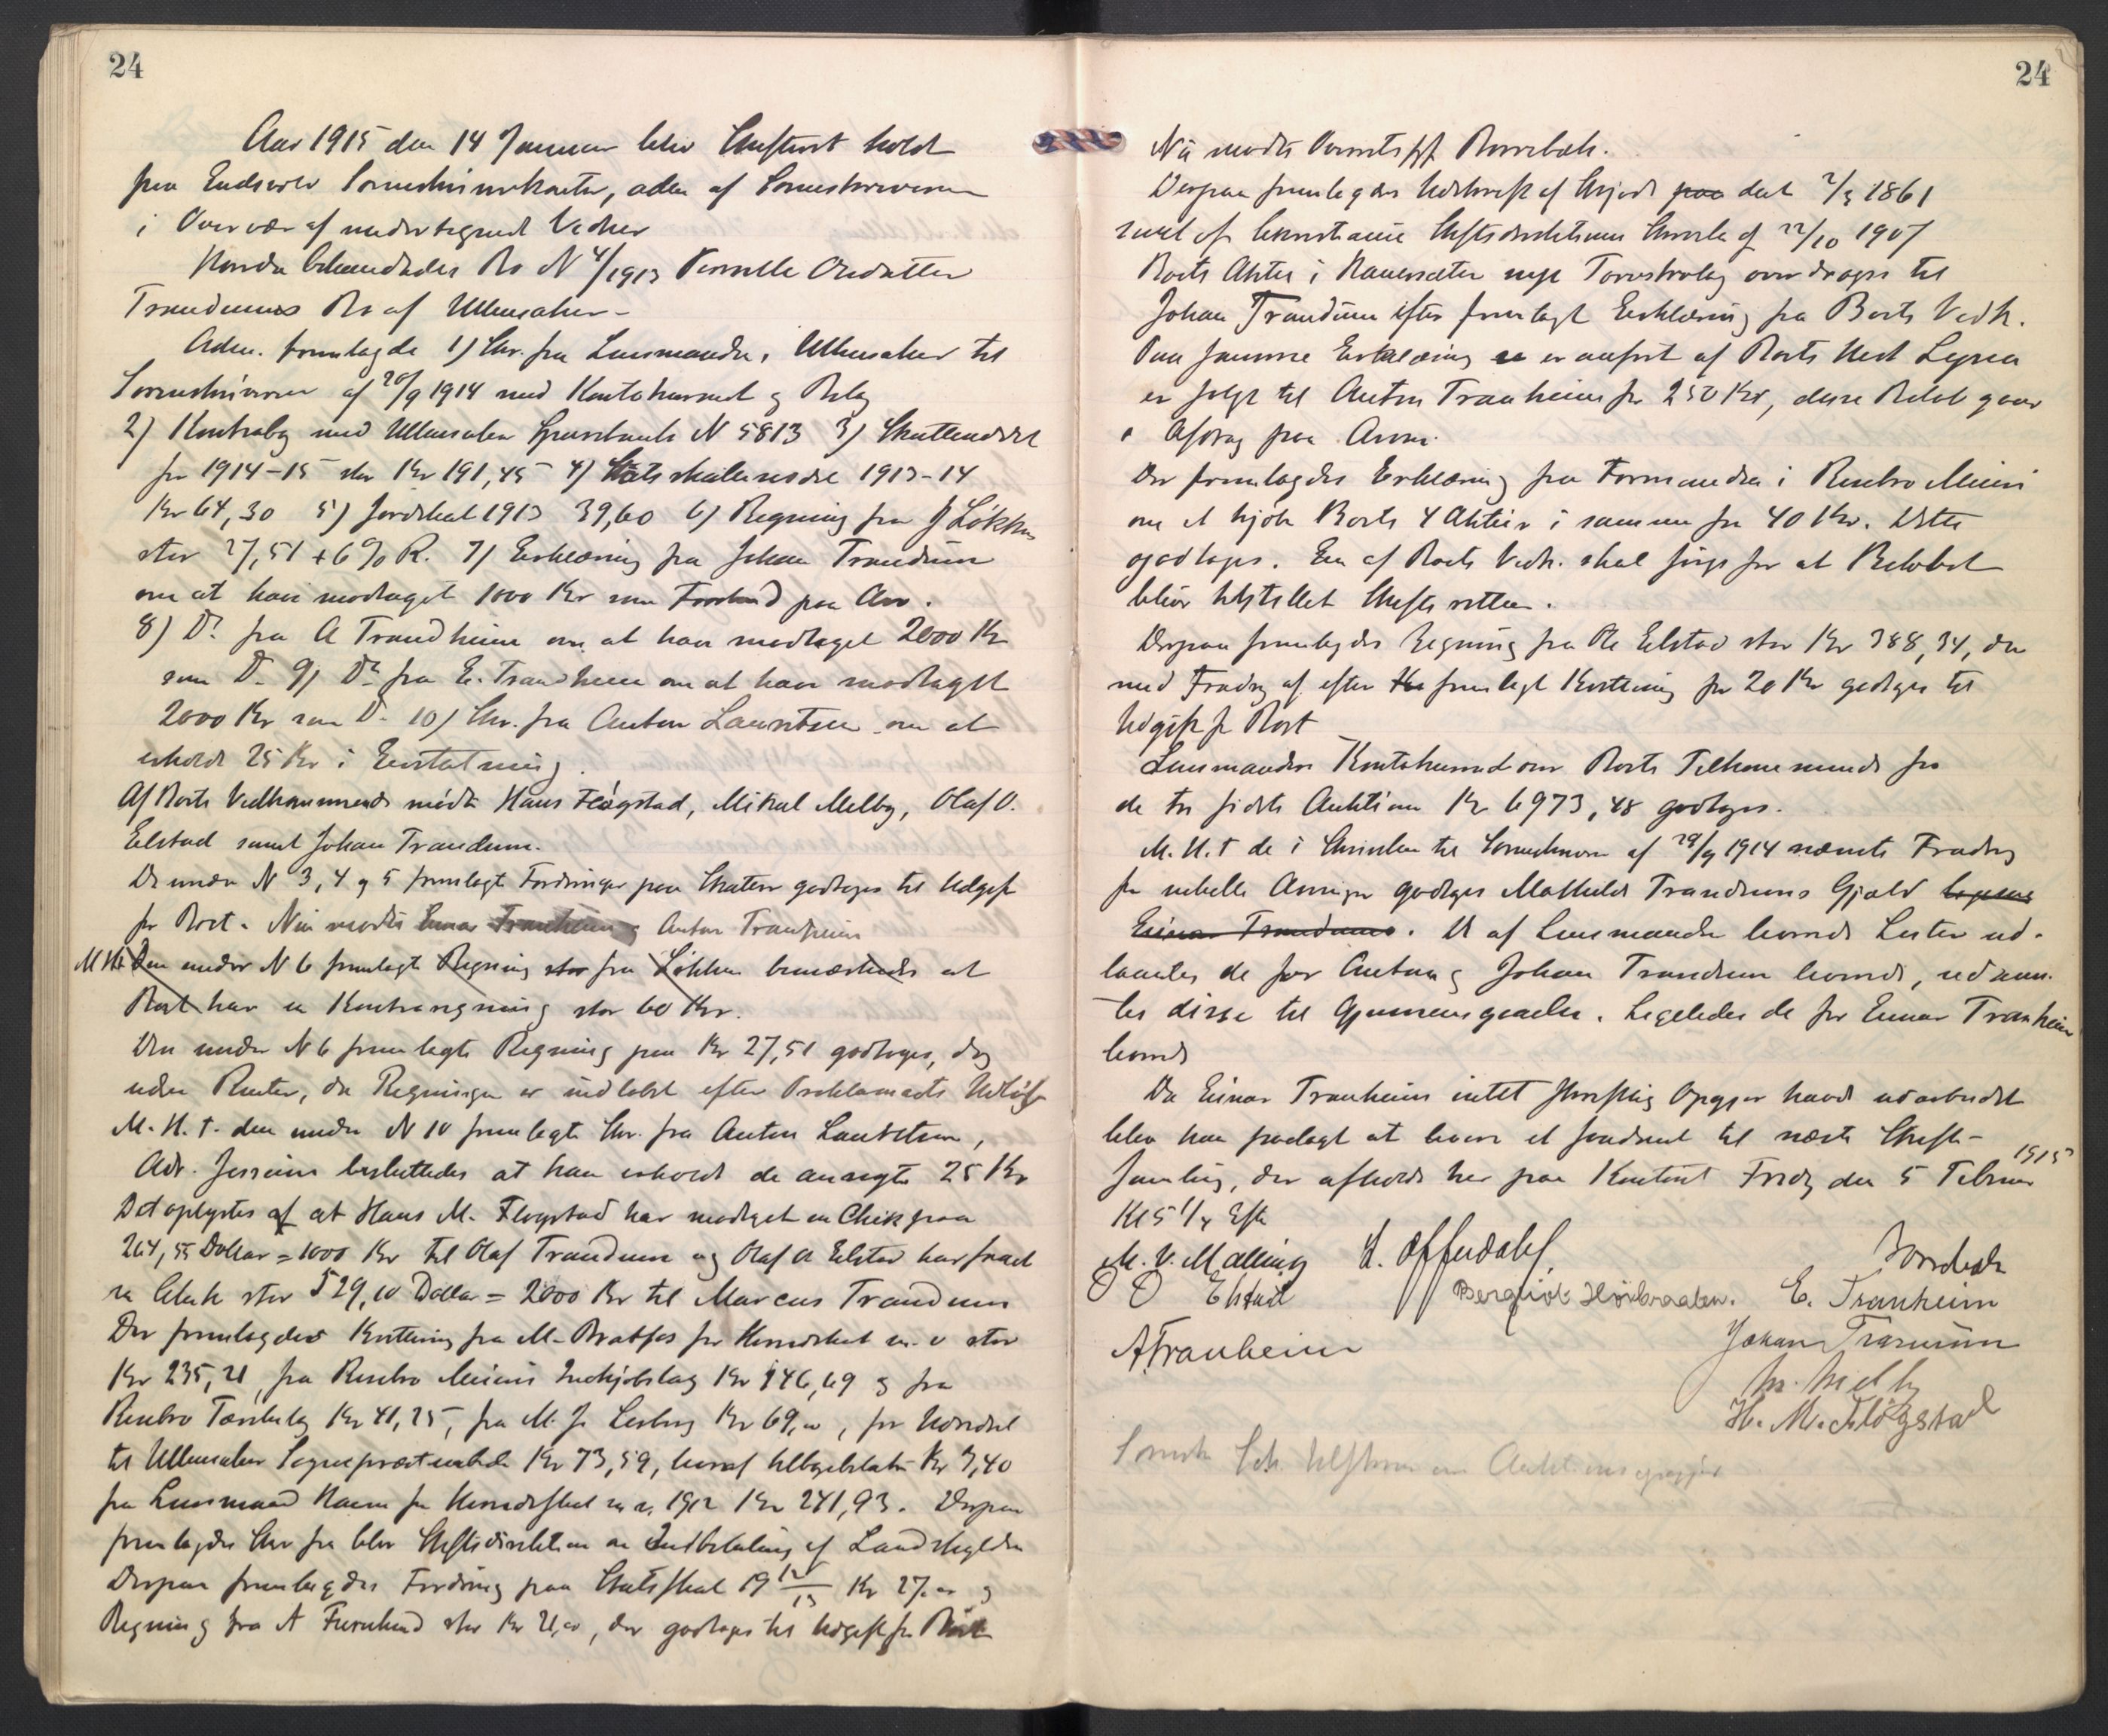 24
Aar 1915 den 14 Januar blev Skifteret holdt
paa Eidsvold Sorenskriverkontor, adm af Sorenskriveren
i Overvær af undertegnede Vidner
Hvorda behandledes Bo N 4/1913 Pernille Olsdatter
Trandums Bo af Ullensaker -
Adm. fremlagde 1) Skr. fra Lensmanden i Ullensaker til
Sorenskriveren af 28/9 1914 med Kontokurant og Bilag
2) Kontrabog med Ullensaker Sparebank N 5813 3) Skatteseddel
for 1914-15 stor Kr 191,45 4) Statsskatteseddel 1913-14
Kr 64,30 5) Jordskat 1913 39,60 6) Regning fra J Løkken
stor 27,51 + 6% R. 7) Erklæring fra Johan Trandum
om at have modtaget 1000 Kr som Forskud paa Arv.
8) Do fra A Trandheim om at have modtaget 2000 Kr
som D- 9) Do fra E. Trandheim om at have modtaget
2000 Kr som D- 10) Skr. fra Anton Lauritsen om at
erholde 25 Kr i Erstatning.
Af Boets Vedkommende mødte Hans Fløgstad, Mikal Melby, Olaf O.
Elstad samt Johan Trandum.
De under N 3, 4 og 5 fremlagte Fordringer paa Skatter godtages til Udgift
for Boet. Nu mødte Einar Tranheim og Anton Tranheim
M H t Den under N 6 fremlagte Regning stor fra Løkken bemærkedes at
Boet har en Kontraregning stor 60 Kr.
Den under N 6 fremlagte Regning paa Kr 27,51 godtages, dog
uden Renter, da Regningen er indløbet efter Proklamaets Udløb
M. H. t. den under N 10 fremlagte Skr. fra Anton Lauritsen,
Adr. Jessheim besluttedes at han erholdt de ansøgte 25 Kr
Det oplystes af at Hans M. Fløgstad har modtaget en Chek paa
264,55 Dollar = 1000 Kr til Olaf Trandum og Olaf O Elstad har faaet
en Chek stor 529,10 Dollar = 2000 Kr til Marcus Trandum
Der fremlagdes Kvittering fra M. Bratfos for Herredskat m. v stor
Kr 235,21, fra Risebro Meieri Indkjøbslag Kr 146,69 og fra
Risebro Kr 41,25, fra M. J. Kr 69,00, for
til Ullensaker Sogneprestembede Kr 73,59, hvoraf tilbagebetalt Kr 3,40
fra Lensmand for Herredsskat m v. 1912 Kr 241,93. Derpaa
fremlagdes Skr fra Skiftsdirektion om Indbetaling af Landskylden
Derpaa fremlagdes Fordring paa Statsskat 19 12/13 Kr 27,00 og
Regning fra A Furulund stor Kr 21,00, der godtages til Udgift for Boet
24
Nu mødte Borrebæk.
Derpaa fremlagdes Udskrift af Skjøde paa dat 7/3 1861
samt af Kristiania Stiftsdirektions Skrivelse af 22/10 1907
Boets Aktie i nye Torvstrølag overdrages til
Johan Trandum efter fremlagt Erklæring fra Boets Vedk.
Paa samme Erklæring er anført af Boets Hest
er solgt til Anton Tranheim for 250 Kr, dette Beløb gaar
i Afdrag paa Arven.
Der fremlagdes Erklæring fra Formanden i Risebro Meieri
om at kjøbe Boets 4 Aktier i samme for 40 Kr. Dette
godtages. En af Boets Vedk. skal sørge for at Beløbet
bliver tilstillet Skifteretten.
Derpaa fremlagdes Regning fra Ole Elstad stor Kr 388,34, der
med Fradrag af efter fremlagt Kvittering for 20 Kr godtages til
Udgift for Boet
Lensmandens Kontokurant over Boets Tilkommende fra
de to sidste Auktioner Kr 6973,48 godtages.
M. H. t de i Skrivelsen til Sorenskriveren af 28/9 1914 nævnte Fradrag
for enkelte Arvinger godtages Mathilde Trandums Gjæld
Einar Trandums. De af Lensmanden leverede Lister ud-
laantes de for Anton og Johan Trandum leverede, udlaan-
tes disse til Gjennemgaaelse. Ligeledes de for Einar Tranheim
leverede
Da Einar Tranheim intet skriftlig Opgjør havde udarbeidet
blev han paalagt at levere et saadant til næste Skifte-
samling, der afholdes her paa Kontoret Fredag den 5 Februar 1915
Kl 5 1/4 Eft
M. V. Malling H. Offerdahl, Borrebæk
O O Elstad Bergliot Hørbraaten. E. Tranheim
A Tranheim Johan Trandum
M. Melby
H. M. Fløgstad